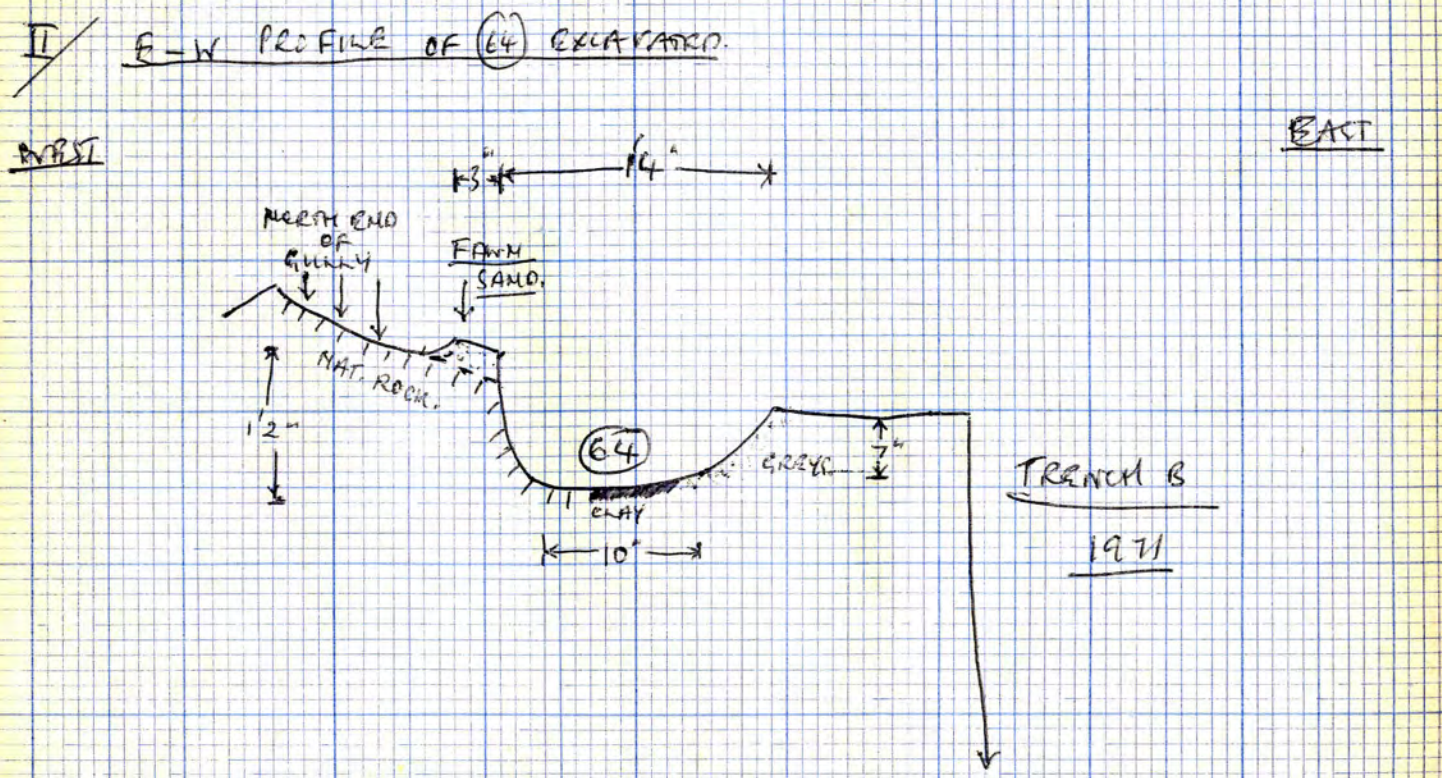 II/ E-W PROFILE OF 64 EXCAVATED.
WEST
EAST
3"
1'4"
NORTH END
OF
GULLY
FAWN
SAND.
NAT. ROCK.
1'2"
64
CLAY
10"
7"
TRENCH B
1971